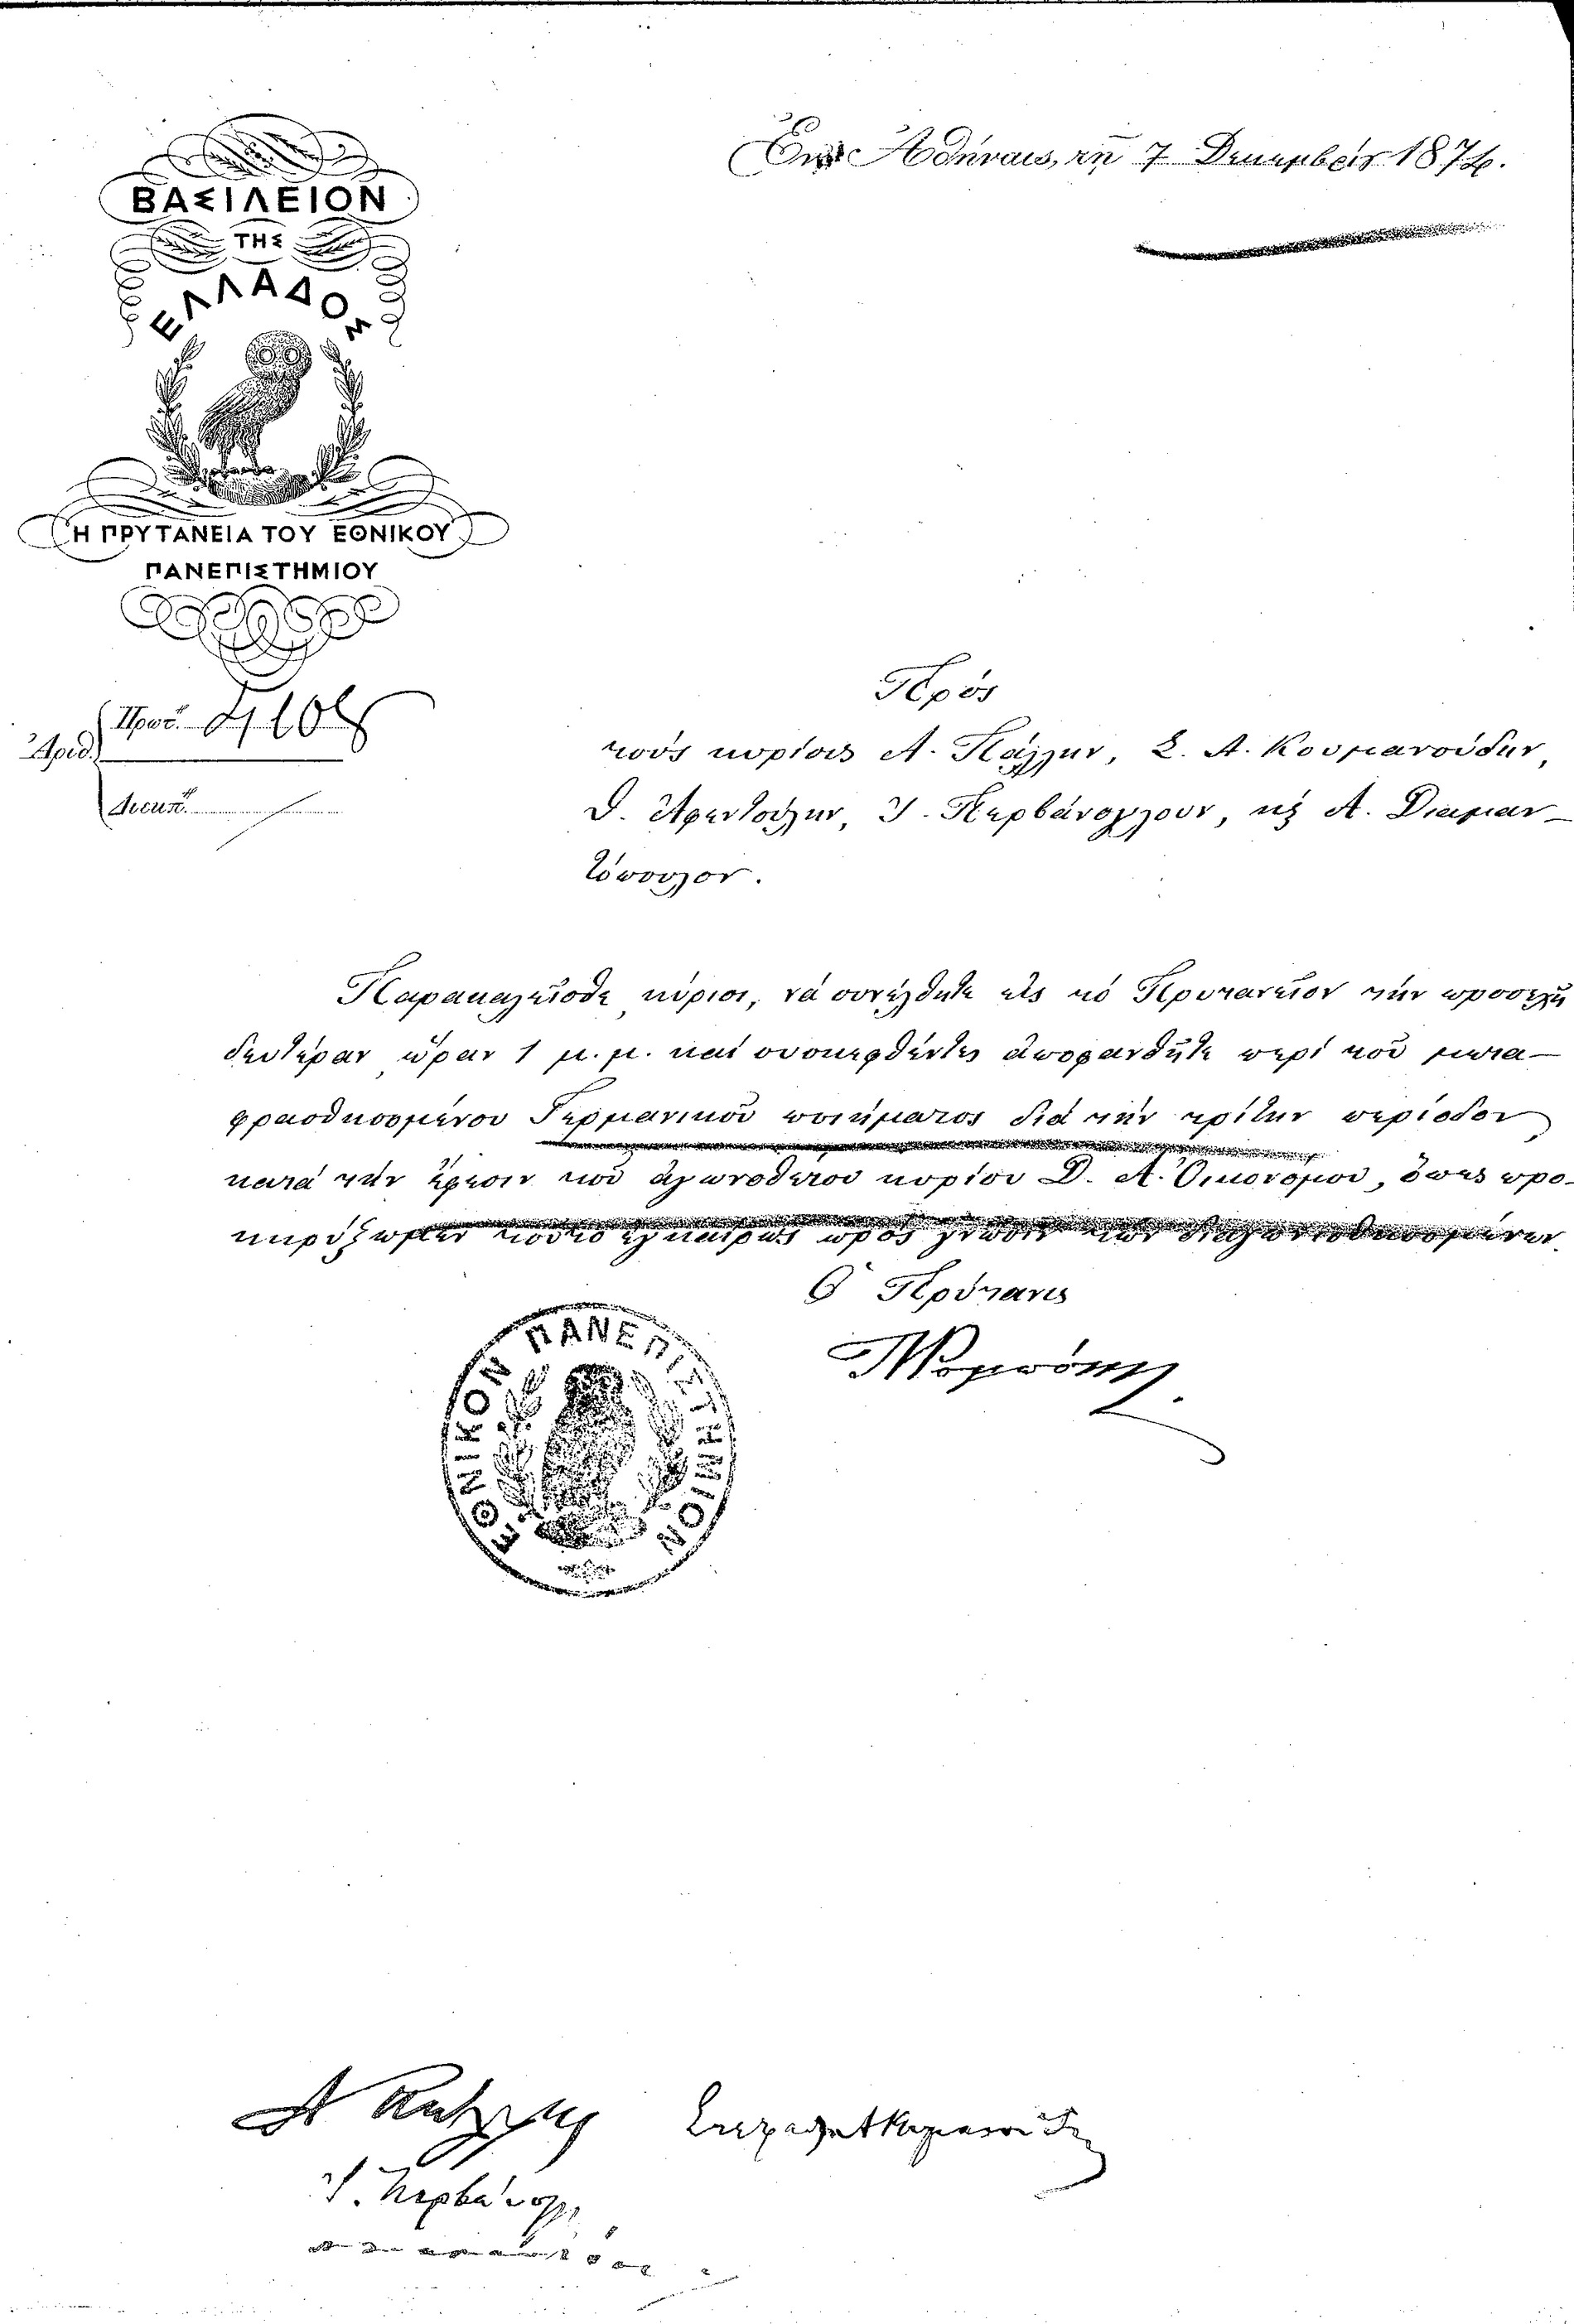 Ἐν Ἀθήναις, τῇ 7 Δεκεμβρίου 1874.
ΒΑΣΙΛΕΙΟΝ
ΤΗΣ
ΕΛΛΑΔΟΣ
Η ΠΡΥΤΑΝΕΙΑ ΤΟΥ ΕΘΝΙΚΟΥ
ΠΑΝΕΠΙΣΤΗΜΙΟΥ
Ἀριθ.
Πρωτ.
Διεκπ.
Πρὸς
τοὺς κυρίους Α. Πάλλην, Σ. Α. Κουμανούδην,
Θ. Ἀφεντούλην, Ἰ. Περβάνογλουν, κὶ Α. Διαμαν-
τόπουλον.
Παρακαλεῖσθε, κύριοι, νὰ συνέλθητε εἰς τὸ Πρυτανεῖον τὴν προσεχῆ
δευτέραν, ὥραν 1 μ.μ. καὶ συσκεφθέντες ἀποφανθῆτε περὶ τοῦ μετα-
φρασθησομένου Γερμανικοῦ ποιήματος διὰ τὴν τρίτην περίοδον,
κατὰ τὴν ἔφεσιν τοῦ ἀγωνοθέτου κυρίου Δ. Α. Οἰκονόμου, ὅπως προ-
κηρύξωμεν τοῦτο ἐγκαίρως πρὸς γνῶσιν τῶν διαγωνισθησομένων.
Ὁ Πρύτανις
ΕΘΝΙΚΟΝ ΠΑΝΕΠΙΣΤΗΜΙΟΝ
Στέφανος Α Κουμανούδης
Ἰ. Περβάνογλ